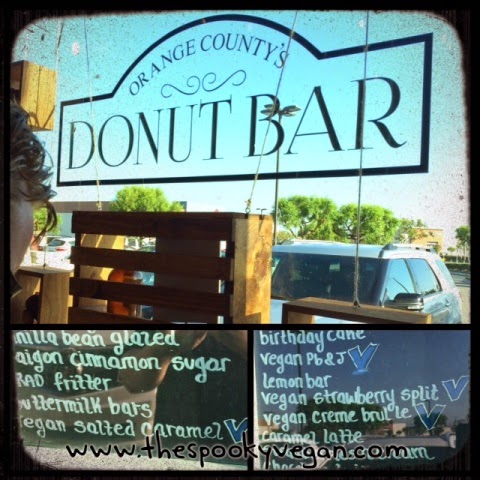 ORANGE COUNTY'S
DONUT BAR
nilla bean glazed
aigon cinnamon sugar
RAD fritter
uttermilk bars
vegan salted caramel V
birthday cake
vegan Pb & J V
lemon bar
vegan strawberry split V
vegan creme brulele V
caramel latte
www.thespookyvegan.com